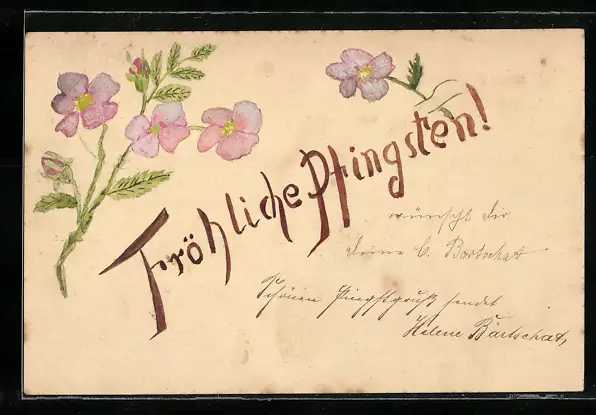 Fröhliche Pfingsten!
wünscht dir
deine C. Bartschat
Schönen Pfingstgruß sendet
Helene Bartschat,